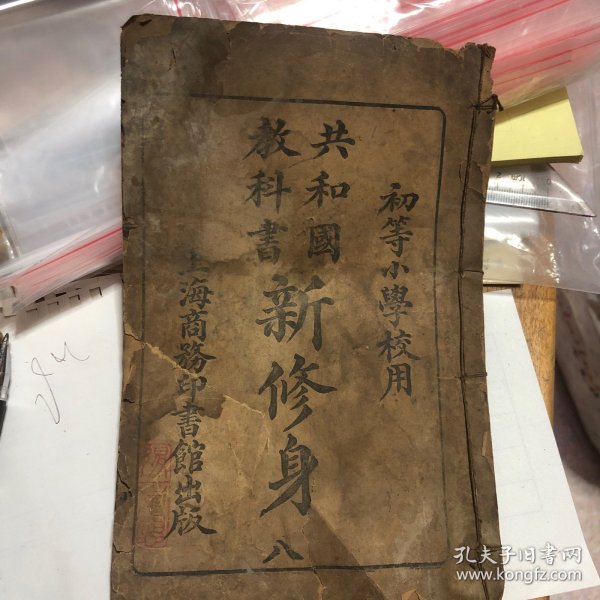 初等小學校用
共和國
教科書
新修身
八
上海商務印書館出版
孔夫子旧书网
www.kongfz.com